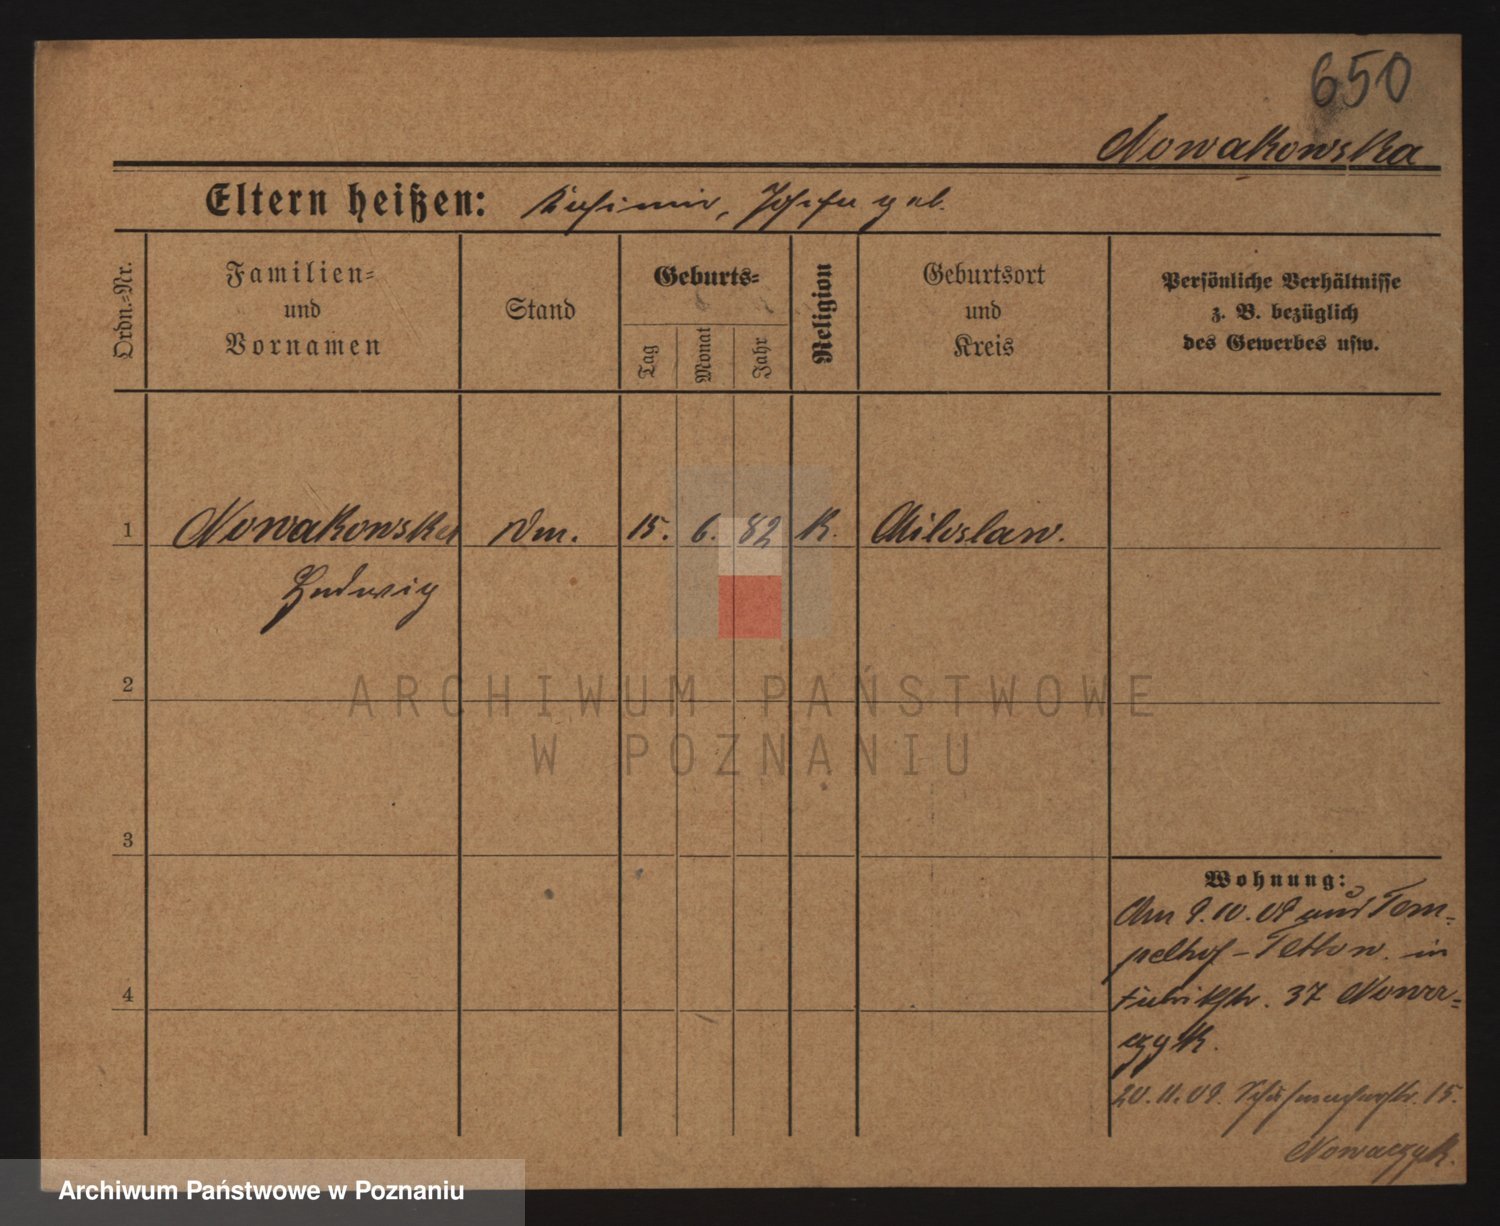 650
Nowakowska
Eltern heißen: Kasimir, Josefa geb.
Ordn.=Nr.
Familien=
und
Vornamen
Stand
Geburts=
Tag
Monat
Jahr
Religion
Geburtsort
und
Kreis
Persönliche Verhältnisse
z. B. bezüglich
des Gewerbes usw.
1 Nowakowska 15. 6. 82 K. Miloslaw.
Ludwig
2
3
4
Wohnung:
Am 9.10.09 aus Tem=
pelhof - Teltow. in
Fabrikstr. 37 Nowa=
czyk.
20.11.09. Schuhmacherstr. 15.
Nowaczyk.
ARCHIWUM PAŃSTWOWE
W POZNANIU
Archiwum Państwowe w Poznaniu